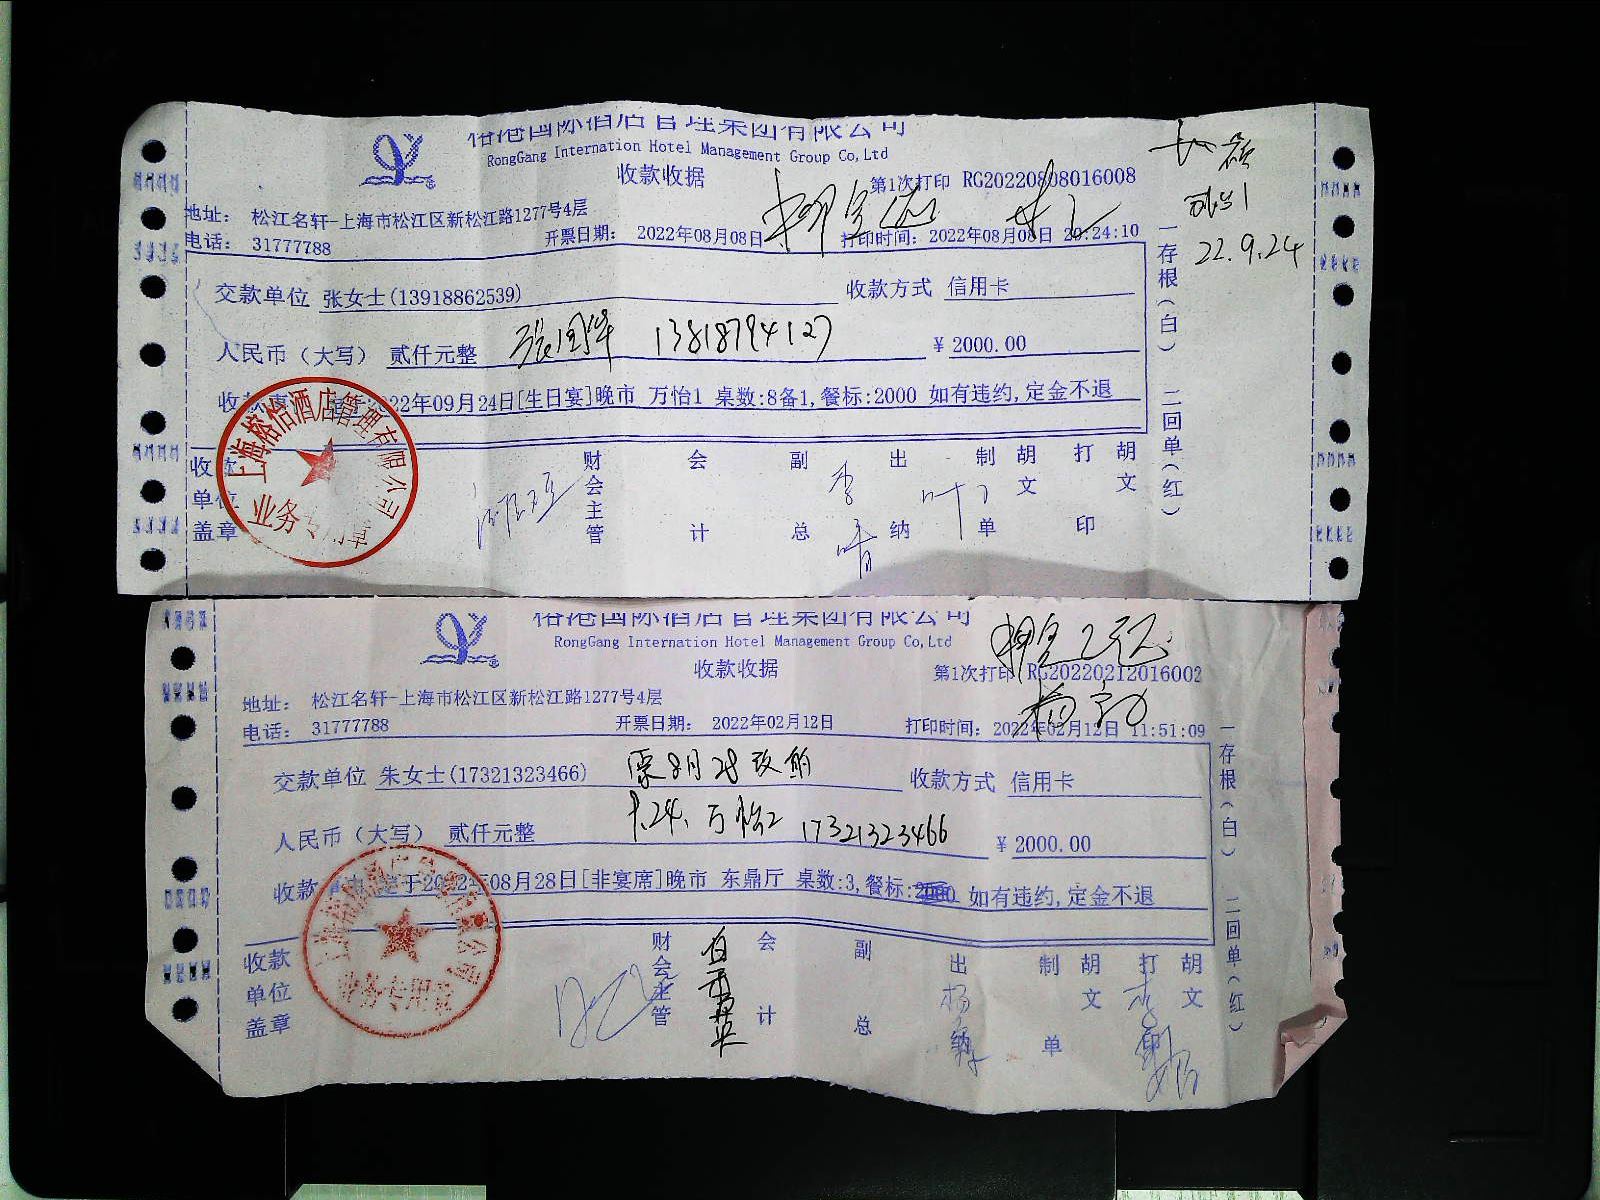 裕港国际酒店管理集团有限公司
RongGang International Hotel Management Group Co,Ltd
收款收据
第1次打印 RG20220808016008
地址: 松江名轩-上海市松江区新松江路1277号4层
电话: 31777788
开票日期: 2022年08月08日
打印时间: 2022年08月08日 20:24:10
22.9.24
交款单位 张女士(13918862539)
收款方式 信用卡
人民币（大写） 贰仟元整
13818794127
￥2000.00
22年09月24日[生日宴]晚市 万怡1 桌数:8备1,餐标:2000 如有违约,定金不退
收款单位盖章
财会主管 会计 副总 出纳 制单 胡文 打印 胡文
李
业务专用章
一存根(白) 二回单(红)
裕港国际酒店管理集团有限公司
RongGang International Hotel Management Group Co,Ltd
收款收据
第1次打印 RG20220212016002
地址: 松江名轩-上海市松江区新松江路1277号4层
电话: 31777788
开票日期: 2022年02月12日
打印时间: 2022年02月12日 11:51:09
交款单位 朱女士(17321323466)
原8月28改前
收款方式 信用卡
人民币（大写） 贰仟元整
万怡2 17321323466
￥2000.00
收款 于2022年08月28日[非宴席]晚市 东鼎厅 桌数:3,餐标: 如有违约,定金不退
收款单位盖章
财会主管 会计 副总 出纳 制单 胡文 打印 胡文
业务专用章
一存根(白) 二回单(红)